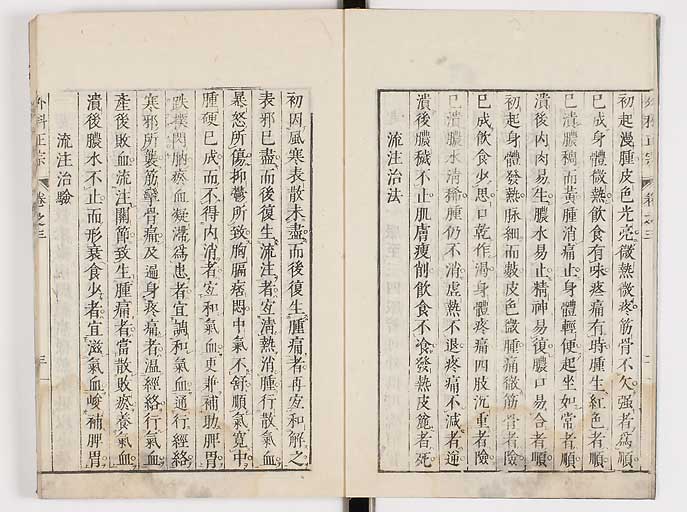 外科正宗 卷之三 二
初起漫腫皮色光亮微熱微疼筋骨不欠强者爲順
已成身體微熱飲食有味疼痛有時腫生紅色者順
已潰膿稠而黃腫消痛止身體輕便起坐如常者順
潰後內肉易生膿水易止精神易復膿口易合者順
初起身體發熱脉細而數皮色微腫痛徹筋骨者險
已成飲食少思口乾作渴身體疼痛四肢沉重者險
已潰膿水清稀腫仍不消虛熱不退疼痛不減者逆
潰後膿穢不止肌膚瘦削飲食不食發熱皮寃者死
流注治法
初因風寒表散未盡而後復生腫痛者再宜和解之
表邪已盡而後復生流注者宜清熱消腫行散氣血
暴怒所傷抑鬱所致胸膈痞悶中氣不舒順氣寬中
腫硬已成而不得內消者宜和氣血更兼補助脾胃
跌撲閃朒瘀血凝滯爲患者宜調和氣血通行經絡
寒邪所襲筋攣骨痛及遍身疼痛者溫經絡行氣血
產後敗血流注關節致生腫痛者當散敗瘀養氣血
潰後膿水不止而形衰食少者宜滋氣血峻補脾胃
流注治驗
外科正宗 卷之三 三